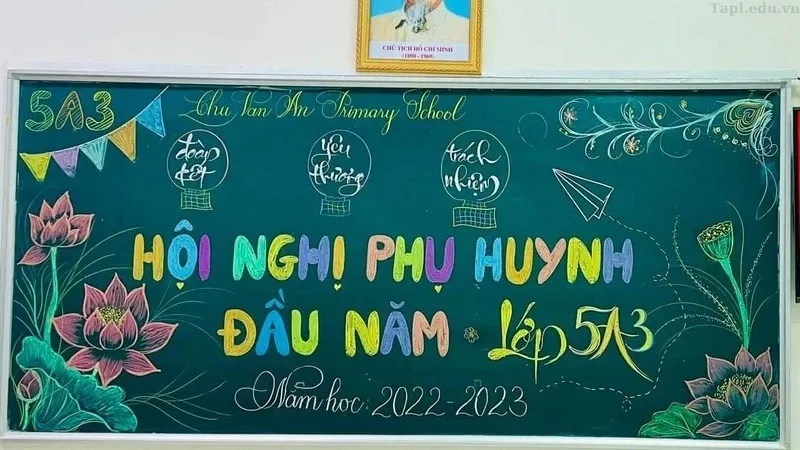 Tapl.edu.vn
CHỦ TỊCH HỒ CHÍ MINH
(1890 - 1969)
5A3
Chu Van An Primary School
đoàn kết
yêu thương
trách nhiệm
HỘI NGHỊ PHỤ HUYNH
ĐẦU NĂM - Lớp 5A3
Năm học: 2022-2023